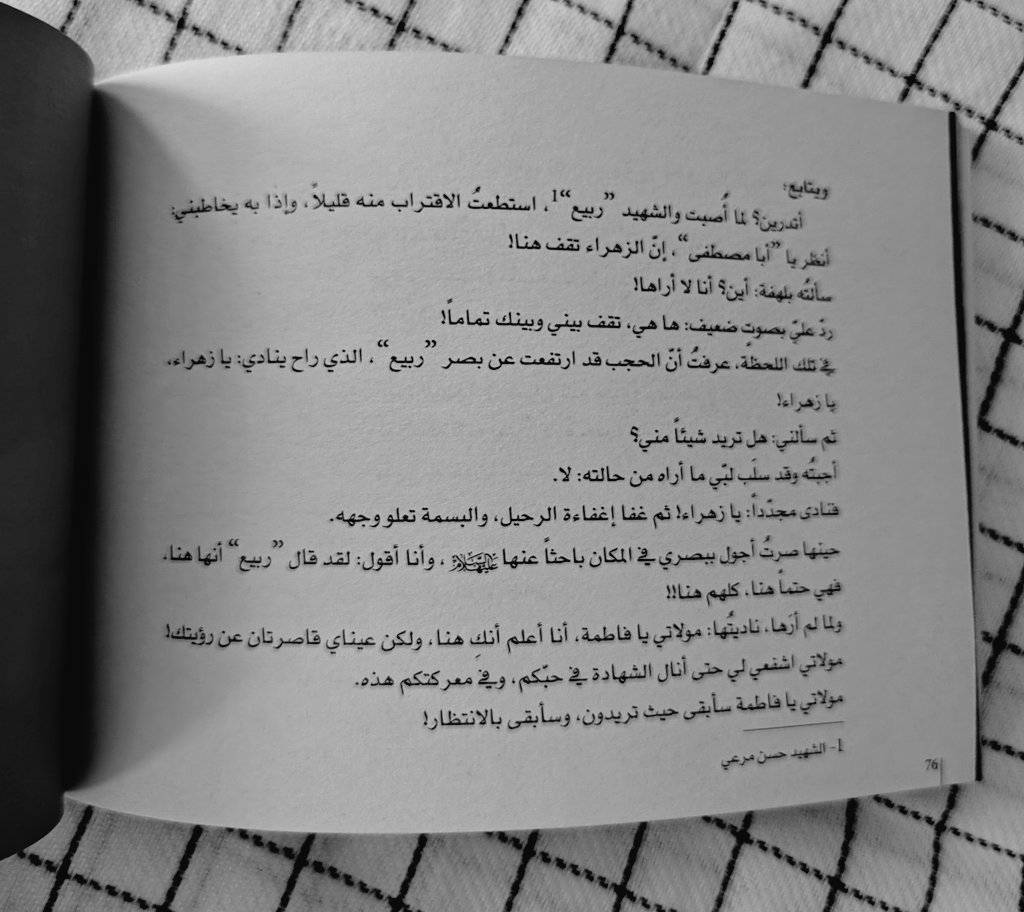 ويتابع:
أتدرين؟ لما أُصبت والشهيد ”ربيع“1، استطعتُ الاقتراب منه قليلاً، وإذا به يخاطبني:
أنظر يا ”أبا مصطفى“، إنّ الزهراء تقف هنا!
سألتُه بلهفة: أين؟ أنا لا أراها!
ردّ عليّ بصوتٍ ضعيف: ها هي، تقف بيني وبينك تماماً!
في تلك اللحظة، عرفتُ أنّ الحجب قد ارتفعت عن بصر ”ربيع“، الذي راح ينادي: يا زهراء،
يا زهراء!
ثم سألني: هل تريد شيئاً مني؟
أجبتُه وقد سلَب لبّي ما أراه من حالته: لا.
فنادى مجدّداً: يا زهراء! ثم غفا إغفاءة الرحيل، والبسمة تعلو وجهه.
حينها صرتُ أجول ببصري في المكان باحثاً عنها عليها السلام، وأنا أقول: لقد قال ”ربيع“ أنها هنا،
فهي حتماً هنا، كلهم هنا!!
ولما لم أرَها، ناديتُها: مولاتي يا فاطمة، أنا أعلم أنكِ هنا، ولكن عيناي قاصرتان عن رؤيتك!
مولاتي اشفعي لي حتى أنال الشهادة في حبّكم، وفي معركتكم هذه.
مولاتي يا فاطمة سأبقى حيث تريدون، وسأبقى بالانتظار!
1- الشهيد حسن مرعي
76